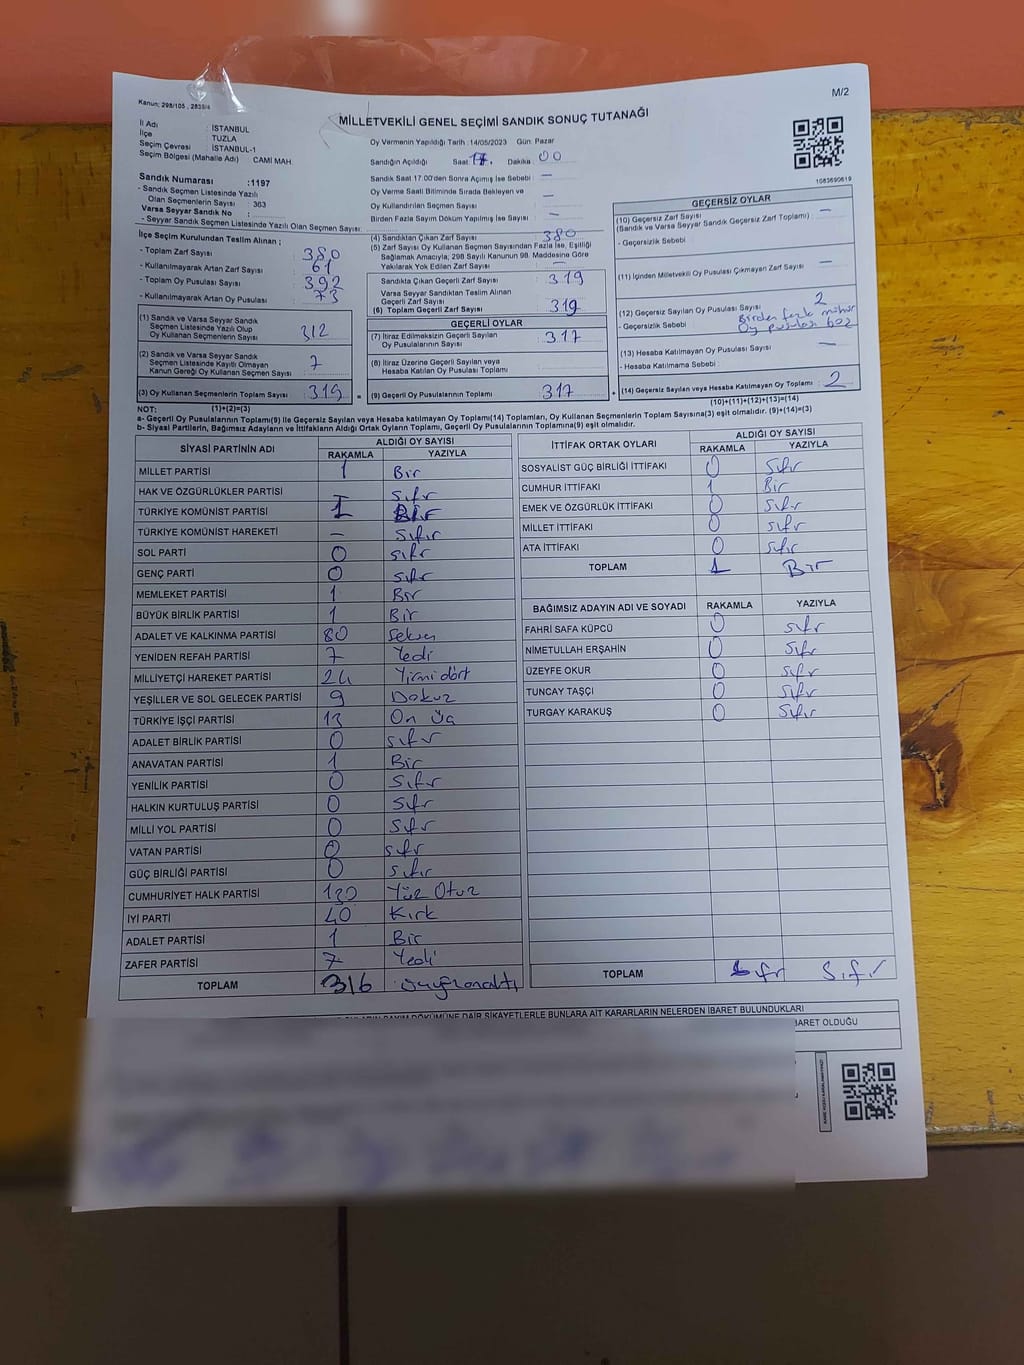 Kanun: 298/105 , 2839/4
M/2
MİLLETVEKİLİ GENEL SEÇİMİ SANDIK SONUÇ TUTANAĞI
İl Adı : İSTANBUL
İlçe : TUZLA
Seçim Çevresi : İSTANBUL-1
Seçim Bölgesi (Mahalle Adı) CAMİ MAH.
Sandık Numarası :1197
- Sandık Seçmen Listesinde Yazılı
Olan Seçmenlerin Sayısı : 363
Varsa Seyyar Sandık No :
- Seyyar Sandık Seçmen Listesinde Yazılı Olan Seçmen Sayısı:
Oy Vermenin Yapıldığı Tarih :14/05/2023 Gün: Pazar
Sandığın Açıldığı Saat 17. Dakika: 00
Sandık Saat 17.00'den Sonra Açımış İse Sebebi : —
Oy Verme Saati Bitiminde Sırada Bekleyen ve
Oy Kullandırılan Seçmen Sayısı : —
Birden Fazla Sayım Döküm Yapılmış İse Sayısı : —
1083690619
İlçe Seçim Kurulundan Teslim Alınan ;
- Toplam Zarf Sayısı : 380
- Kullanılmayarak Artan Zarf Sayısı : 61
- Toplam Oy Pusulası : 392
- Kullanılmayarak Artan Oy Pusulası : 73
(1) Sandık ve Varsa Seyyar Sandık
Seçmen Listesinde Yazılı Olup
Oy Kullanan Seçmenlerin Sayısı : 312
(2) Sandık ve Varsa Seyyar Sandık
Seçmen Listesinde Kayıtlı Olmayan
Kanun Gereği Oy Kullanan Seçmen Sayısı : 7
(3) Oy Kullanan Seçmenlerin Toplam Sayısı : 319
(4) Sandıktan Çıkan Zarf Sayısı : 380
(5) Zarf Sayısı Oy Kullanan Seçmen Sayısından Fazla İse, Eşitliği
Sağlamak Amacıyla; 298 Sayılı Kanunun 98. Maddesine Göre
Yakılarak Yok Edilen Zarf Sayısı : —
Sandıkta Çıkan Geçerli Zarf Sayısı : 319
Varsa Seyyar Sandıktan Teslim Alınan
Geçerli Zarf Sayısı :
(6) Toplam Geçerli Zarf Sayısı : 319
GEÇERLİ OYLAR
(7) İtiraz Edilmeksizin Geçerli Sayılan
Oy Pusulalarının Sayısı : 317
(8) İtiraz Üzerine Geçerli Sayılan veya
Hesaba Katılan Oy Pusulası Toplamı :
(9) Geçerli Oy Pusulalarının Toplamı : 317
GEÇERSİZ OYLAR
(10) Geçersiz Zarf Sayısı : —
(Sandık ve Varsa Seyyar Sandık Geçersiz Zarf Toplamı)
- Geçersizlik Sebebi :
(11) İçinden Milletvekili Oy Pusulası Çıkmayan Zarf Sayısı : —
(12) Geçersiz Sayılan Oy Pusulası Sayısı : 2
- Geçersizlik Sebebi : Birden fazla mühür
Oy pusulası
(13) Hesaba Katılmayan Oy Pusulası Sayısı : —
- Hesaba Katılmama Sebebi :
(14) Geçersiz Sayılan veya Hesaba Katılmayan Oy Toplamı : 2
(10)+(11)+(12)+(13)=(14)
NOT: (1)+(2)=(3)
a- Geçerli Oy Pusulalarının Toplamı(9) ile Geçersiz Sayılan veya Hesaba katılmayan Oy Toplamı(14) Toplamları, Oy Kullanan Seçmenlerin Toplam Sayısına(3) eşit olmalıdır. (9)+(14)=(3)
b- Siyasi Partilerin, Bağımsız Adayların ve İttifakların Aldığı Ortak Oyların Toplamı, Geçerli Oy Pusulalarının Toplamına(9) eşit olmalıdır.
SİYASİ PARTİNİN ADI ALDIĞI OY SAYISI
RAKAMLA YAZIYLA
MİLLET PARTİSİ 1 Bir
HAK VE ÖZGÜRLÜKLER PARTİSİ sıfır
TÜRKİYE KOMÜNİST PARTİSİ 1 Bir
TÜRKİYE KOMÜNİST HAREKETİ — sıfır
SOL PARTİ 0 sıfır
GENÇ PARTİ 0 sıfır
MEMLEKET PARTİSİ 1 Bir
BÜYÜK BİRLİK PARTİSİ 1 Bir
ADALET VE KALKINMA PARTİSİ 80 Seksen
YENİDEN REFAH PARTİSİ 7 Yedi
MİLLİYETÇİ HAREKET PARTİSİ 24 Yirmi dört
YEŞİLLER VE SOL GELECEK PARTİSİ 9 Dokuz
TÜRKİYE İŞÇİ PARTİSİ 13 On üç
ADALET BİRLİK PARTİSİ 0 sıfır
ANAVATAN PARTİSİ 1 Bir
YENİLİK PARTİSİ 0 Sıfır
HALKIN KURTULUŞ PARTİSİ 0 Sıfır
MİLLİ YOL PARTİSİ 0 Sıfır
VATAN PARTİSİ 0 sıfır
GÜÇ BİRLİĞİ PARTİSİ 0 sıfır
CUMHURİYET HALK PARTİSİ 130 Yüz Otuz
İYİ PARTİ 40 Kırk
ADALET PARTİSİ 1 Bir
ZAFER PARTİSİ 7 Yedi
TOPLAM 316 üçyüzonaltı
İTTİFAK ORTAK OYLARI ALDIĞI OY SAYISI
RAKAMLA YAZIYLA
SOSYALİST GÜÇ BİRLİĞİ İTTİFAKI 0 Sıfır
CUMHUR İTTİFAKI 1 Bir
EMEK VE ÖZGÜRLÜK İTTİFAKI 0 Sıfır
MİLLET İTTİFAKI 0 sıfır
ATA İTTİFAKI 0 sıfır
TOPLAM 1 Bir
BAĞIMSIZ ADAYIN ADI VE SOYADI RAKAMLA YAZIYLA
FAHRİ SAFA KÜPCÜ 0 sıfır
NİMETULLAH ERŞAHİN 0 Sıfır
ÜZEYFE OKUR 0 sıfır
TUNCAY TAŞÇI 0 Sıfır
TURGAY KARAKUŞ 0 Sıfır
TOPLAM Sıfır
SAYIM DÖKÜMÜNE DAİR ŞİKAYETLERLE BUNLARA AİT KARARLARIN NELERDEN İBARET BULUNDUKLARI
BARET OLDUĞU